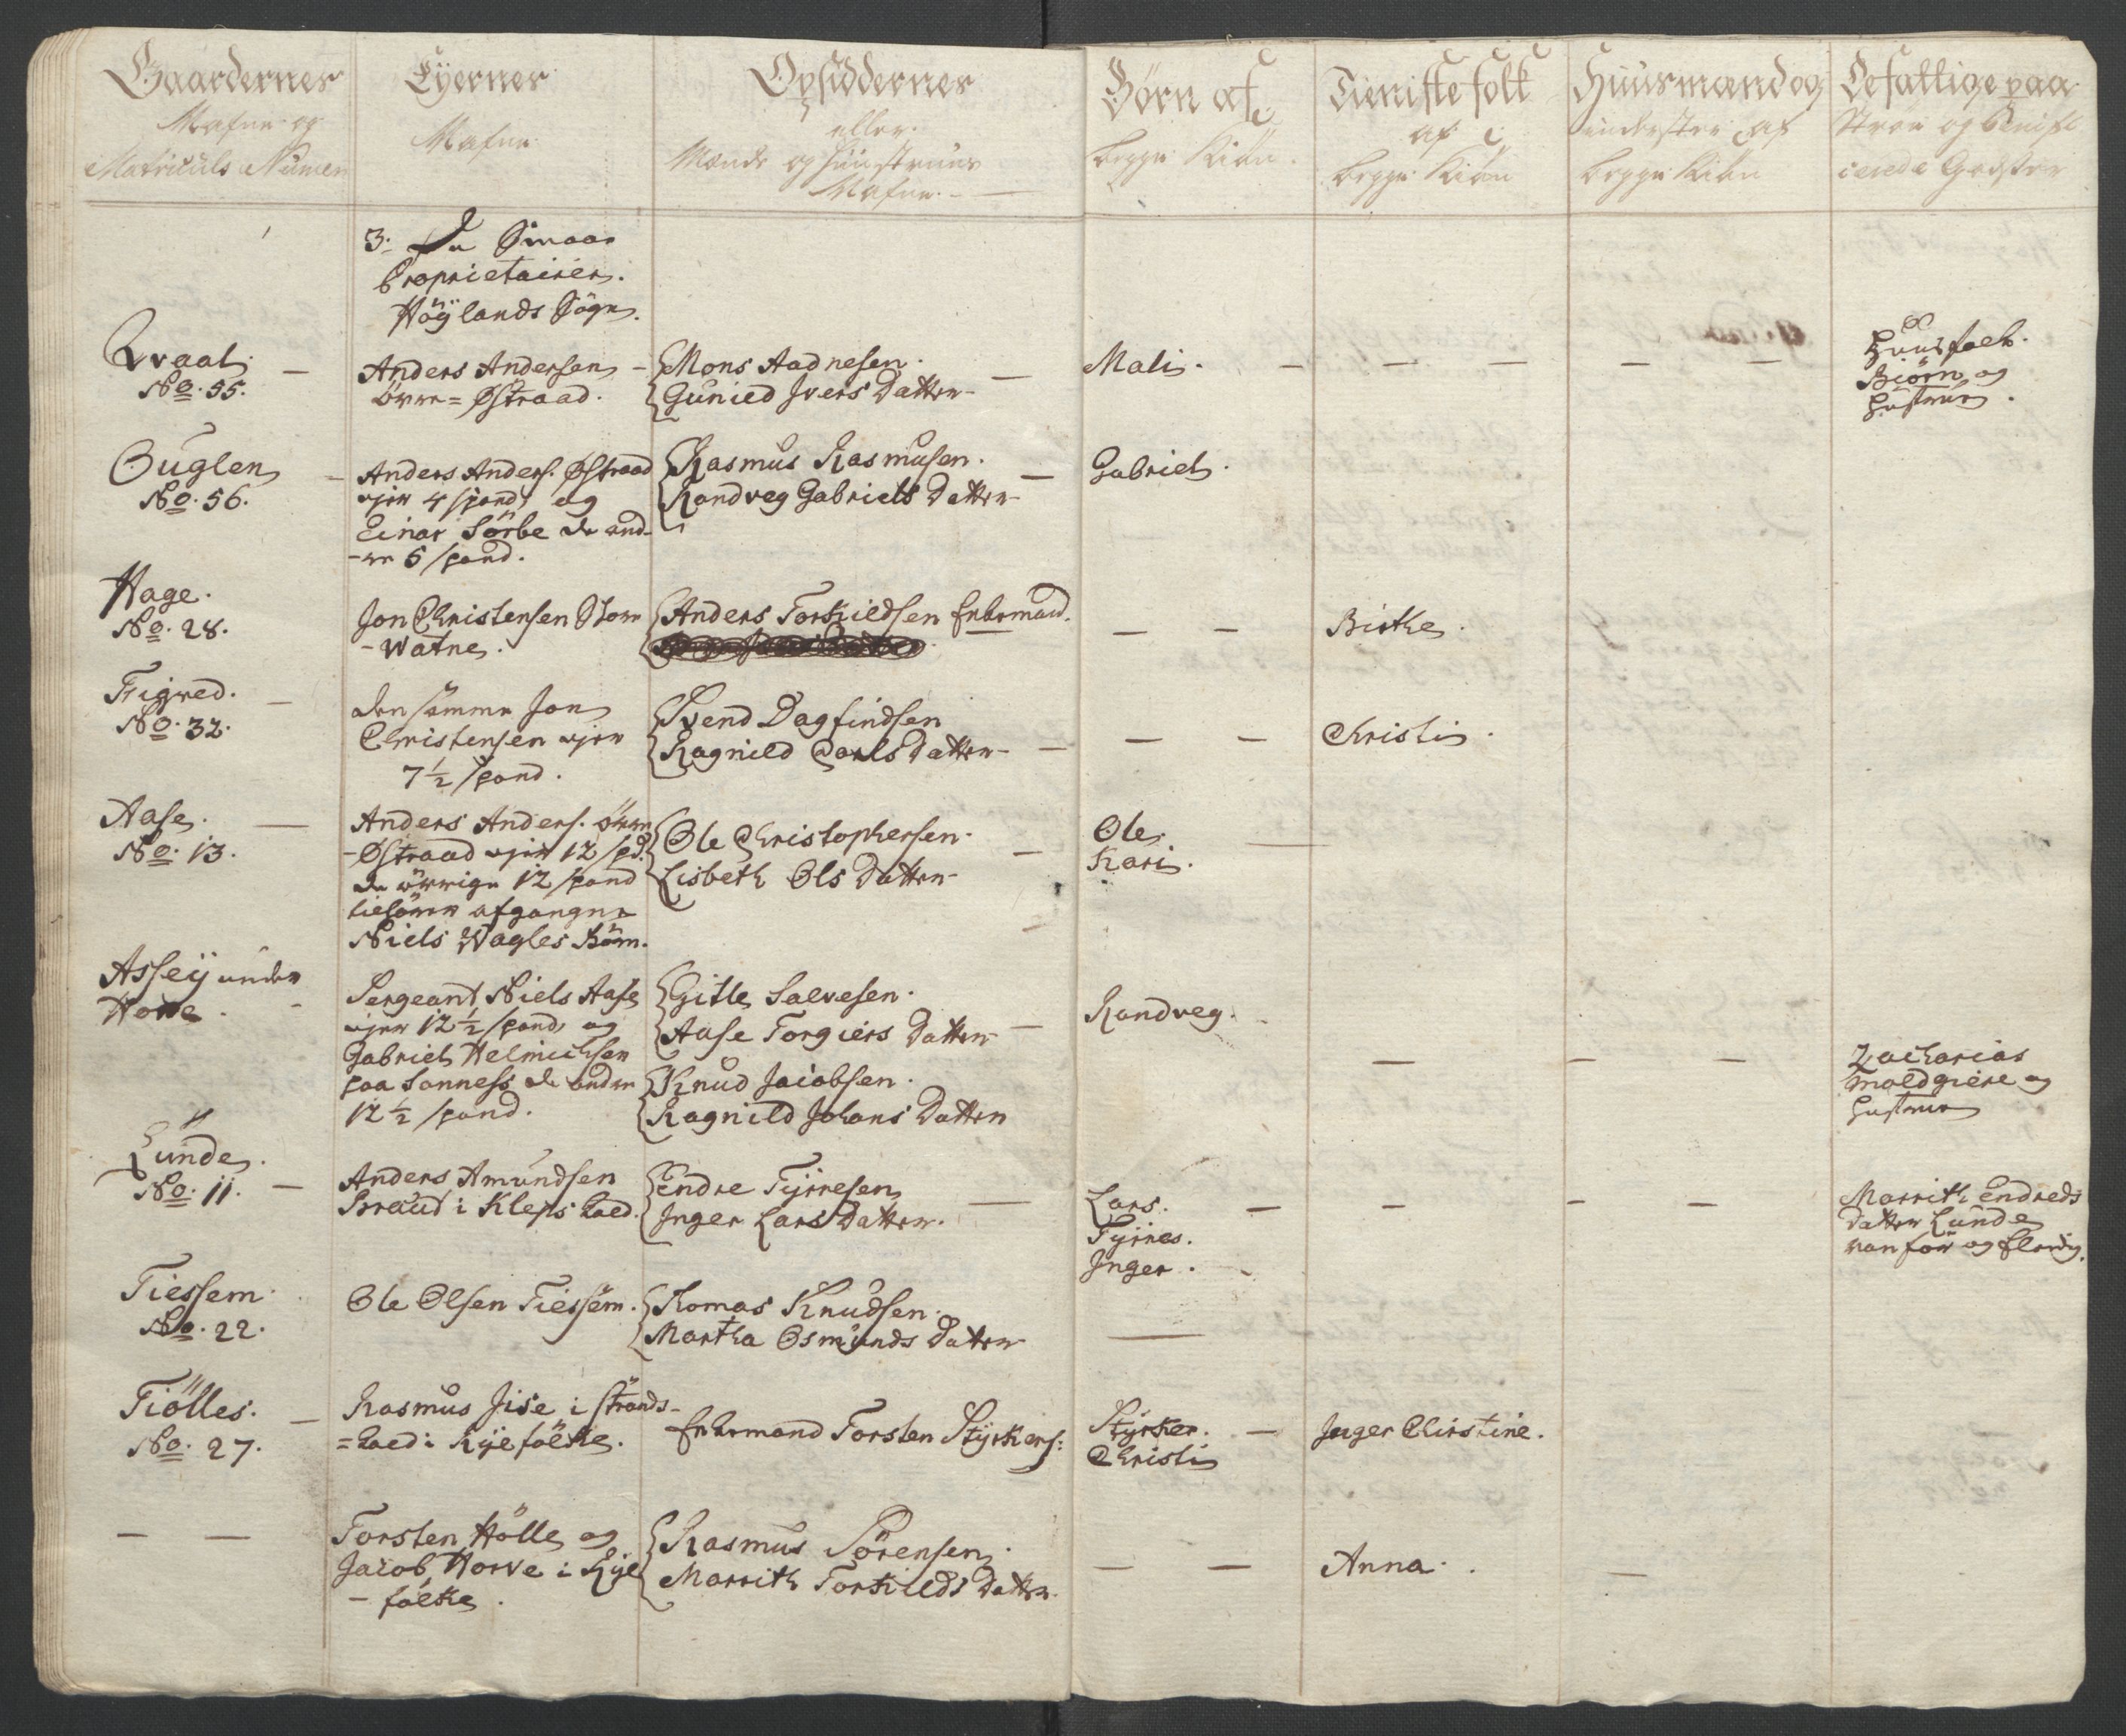 Gaardernes
Nafne og
Matriculs Numer
Eÿernes
Nafne
Opsiddernes
eller
Mænds og Hüüstruers
Nafne.
Börn af
begge Kiön.
Tieniste folk
af
begge Kiön
Huusmænd og
inderster af
begge Kiön
De fattige paa
3. De Smaae
Proprietairer.
Höÿlands Sogn.
Qvaal.
No. 55.
Anders Andersen
övre = Östraad.
Mons Aadnesen.
Gunild Ivers Datter
Mali.
Huusfolk.
Biörn og
Hustrue.
Buglen
No. 56.
Anders Anders. Östraad
ejer 4 spand og
Einar Sörbe de and-
-re 5 spand.
Rasmus Rasmusen.
Randveg Gabriels Datter
Gabriel.
Hage.
No. 28.
Jon Christensen Store
-Watne.
Anders Torkildsen Enkemand.
Birthe.
Figved.
No. 32.
den samme Jon
Christensen ejer
7½ spand.
Svend Dagfindsen
Ragnild Carls Datter
Christi.
Aase.
No. 13.
Anders Anders. övre
-Östraad ejer 12 spd.
de övrige 12 spand
tilhörer afgangne
Niels Wagles Börn.
Ole Christophersen.
Lisbeth Ols Datter
Ole.
Kari.
Asseÿ under
Hove.
Sergeant Niels Aase
ejer 12½ spand og
Gabriel Helmichsen
paa Sanness de andre
12½ spand.
Gitle Salvesen.
Aase Torgiers Datter
Knud Jacobsen.
Ragnild Johans Datter
Randveg.
Zacharias
Moldgiere og
Hustrue
Lunde.
No. 11.
Anders Amundsen
Braud i Kleps Gield.
Endre Tÿrresen
Inger Lars Datter.
Lars.
Tÿrres.
Inger.
Marrith Endreds
Datter Lunde
vanför og Elendig.
Tiessem.
No. 22.
Ole Olsen Tiessem.
Tomas Knudsen.
Martha Osmunds Datter
Tiölles.
No. 27.
Rasmus Jise i Strands-
=Gield i Rÿefölke.
Enkemand Torsten Stÿrkers:
Stÿrker.
Christi
Inger Chirstine.
Torsten Hölle og
Jacob Horve i Rÿe
-fölke.
Rasmus Sörensen.
Marrith Torkilds Datter.
Anna.